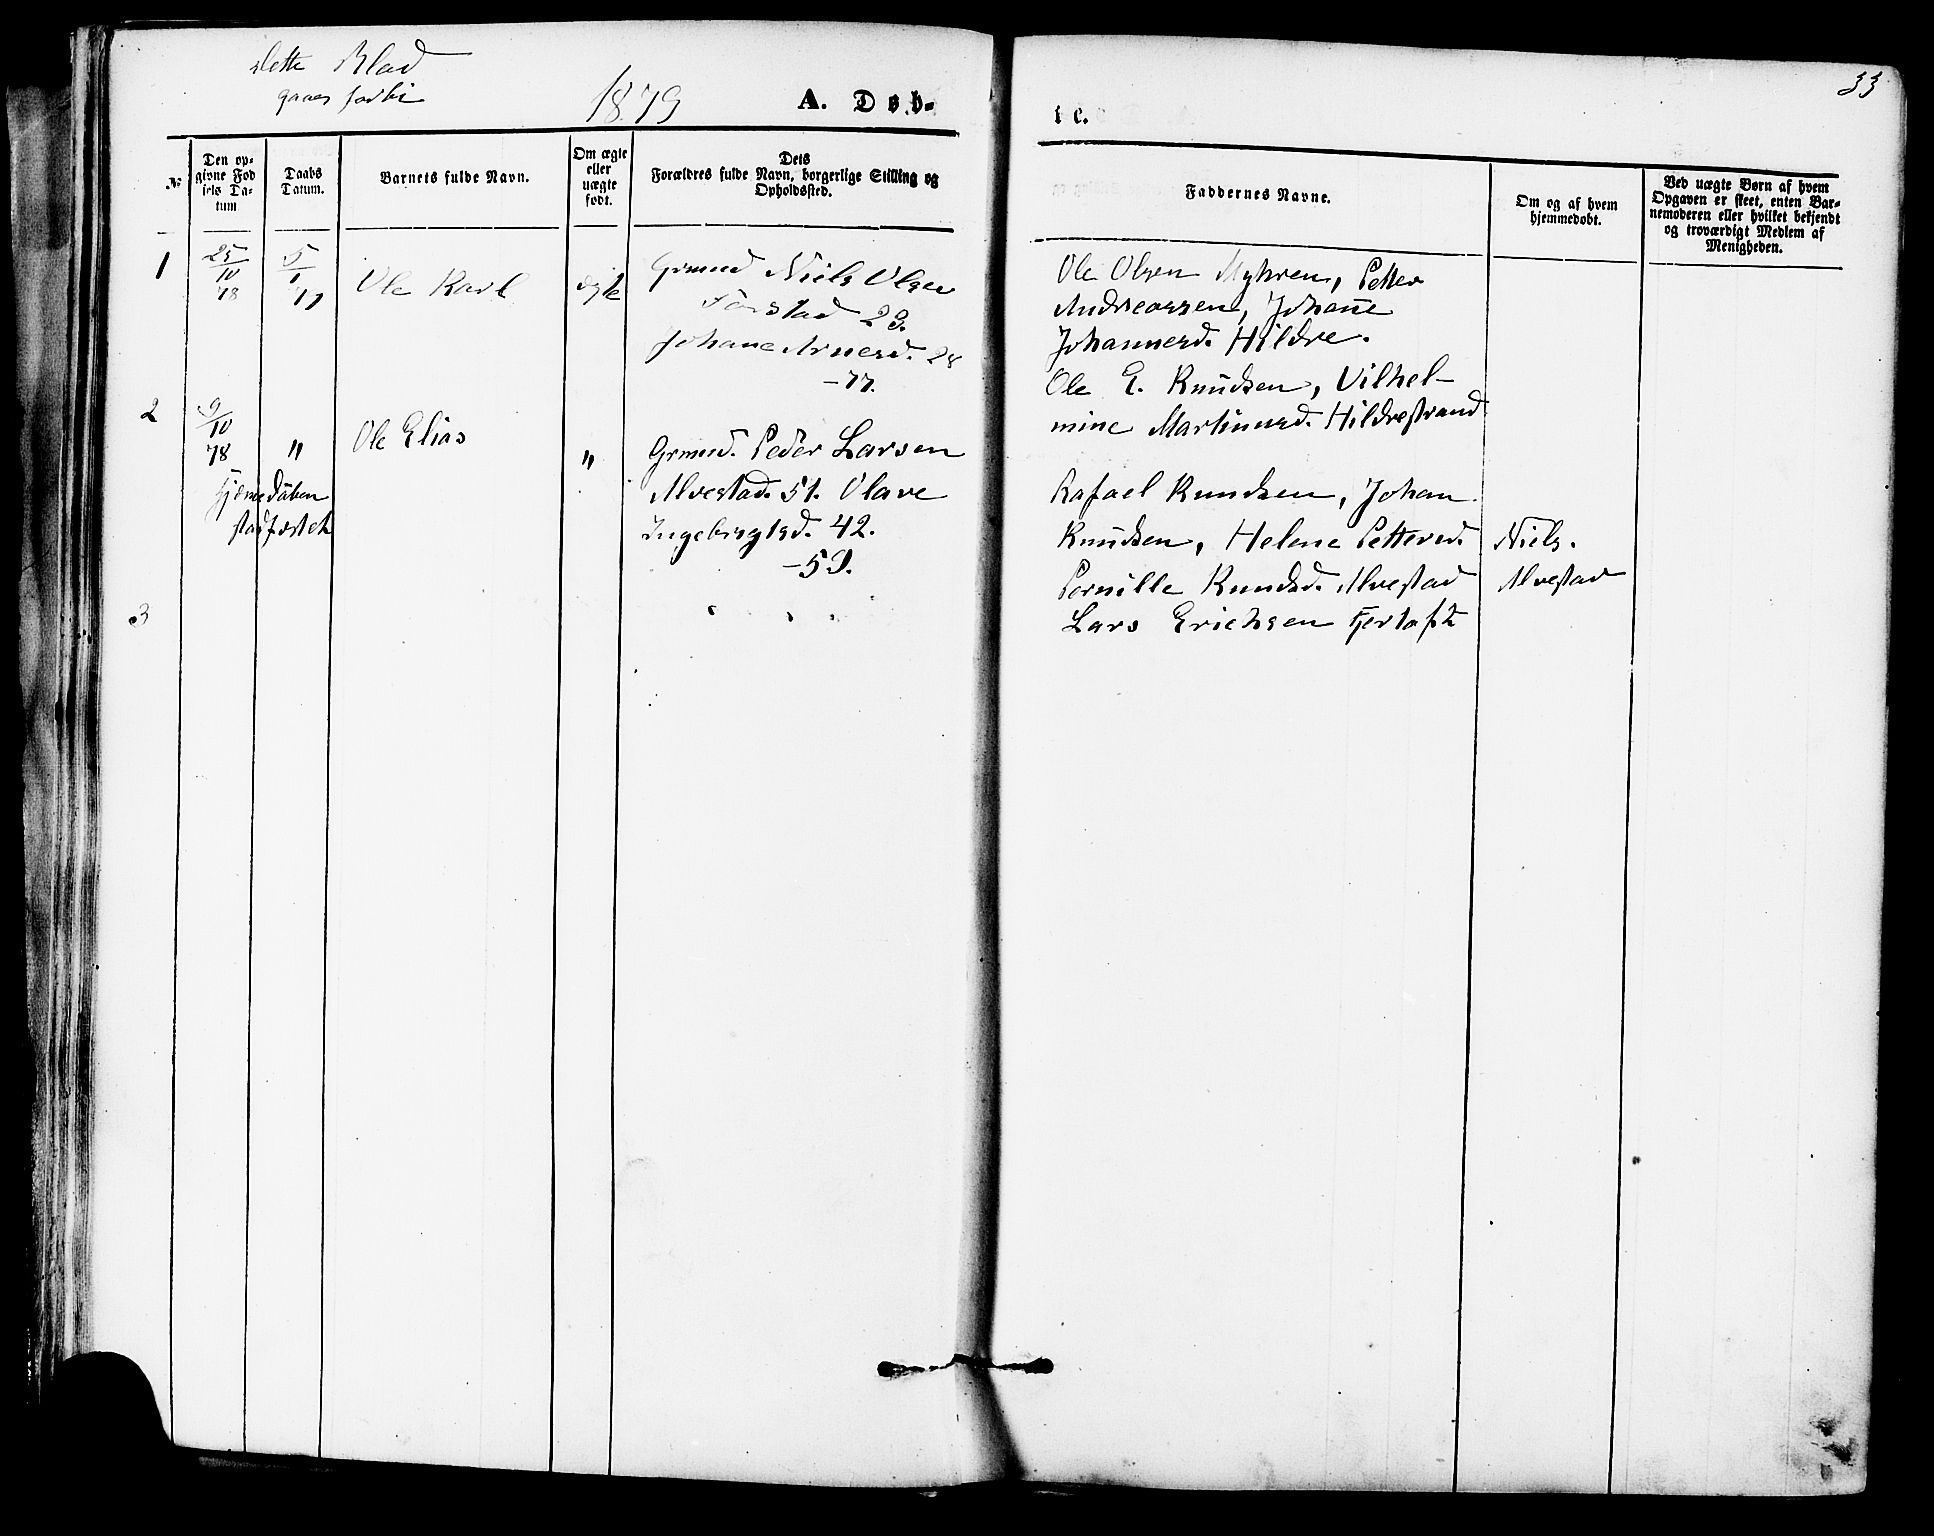 Dette Blad
gaaes forbi
1879
A. Døb-
te.
33
№
Den op-
givne Fød
sels Da-
tum
Daabs
Datum.
Barnets fulde Navn.
Om ægte
eller
uægte
født.
Dets
Forældres fulde Navn, borgerlige Stilling og
Opholdssted.
Faddernes Navne.
Om og af hvem
hjemmedøbt.
Ved uægte Børn af hvem
Opgaven er skeet, enten Bar-
nemoderen eller hvilket bekjendt
og troværdigt Medlem af
Menigheden.
1
25/10 78
5/1 79
Ole Karl
ægte
Grmnd Niels Olsen
29.
Johane Arnesd. 28
-77.
Ole Olsen Myhren, Petter
Andreassen, Johane
Johannesd. Hildre.
Ole E. Knudsen, Vilhel-
mine Martinusd. Hildrestrand
2
9/10
78
"
Ole Elias
"
Hjemmedåben
stadfæstet
Grmnd. Peder Larsen
Alvestad. 51. Olave
Ingebrigtsd. 42.
-59.
Rafael Knudsen, Johan
Knudsen, Helene Pettersd.
Pernille Knudsd. Alvestad
Lars Erichsen Fjertoft
Niels.
Alvestad
3